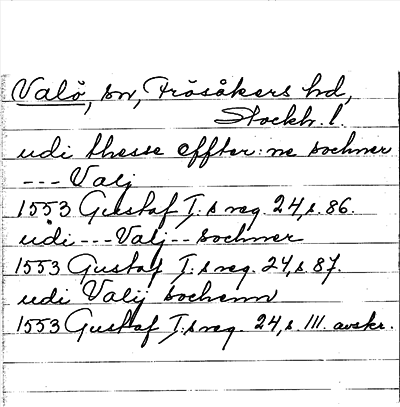 Valö, sn, Frösåkers hd,
Stockh. l.
udi thesse effter:ne sochner
--- Valj
1553 Gustaf I:s reg. 24, s. 86.
udi --- Valj -- sochner
1553 Gustaf I:s reg. 24, s. 87.
udi Valij sochenn
1553 Gustaf I:s reg. 24, s. 111. avskr.